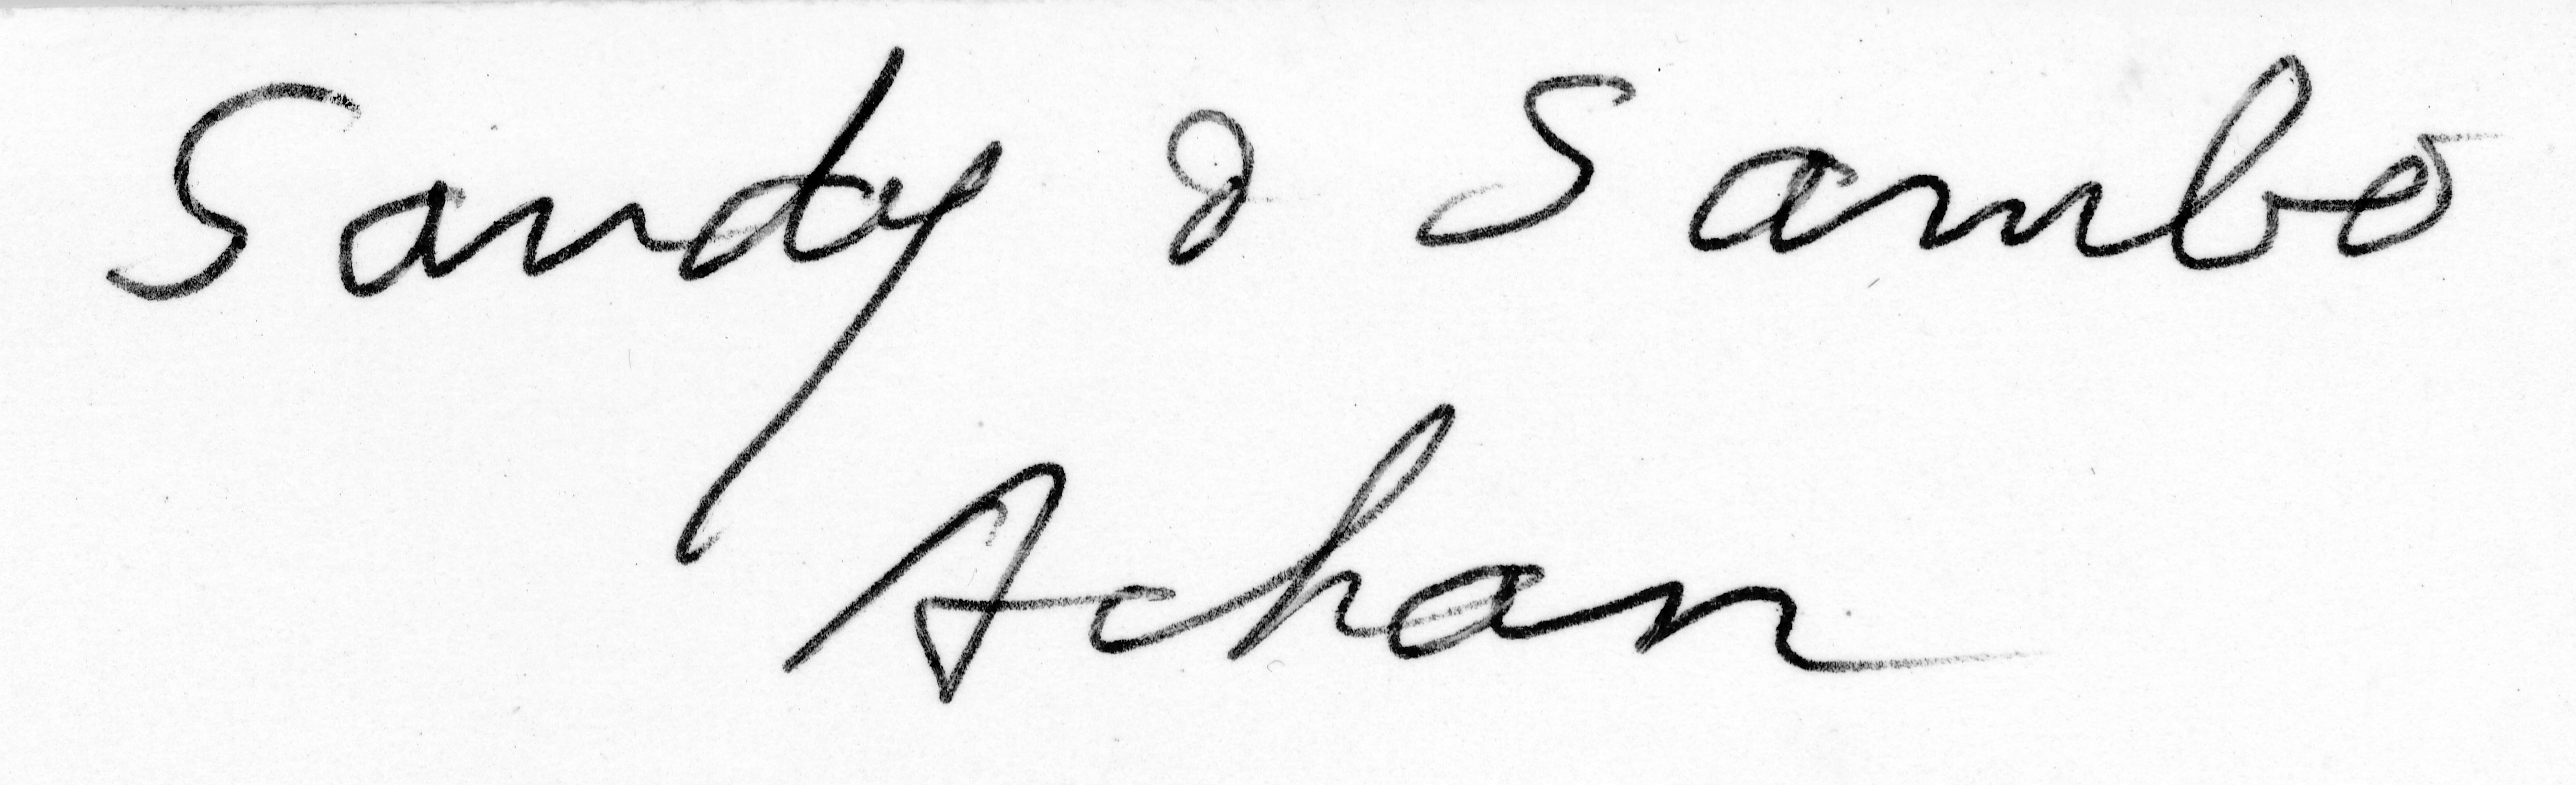 Sandy & Sambo
Achan